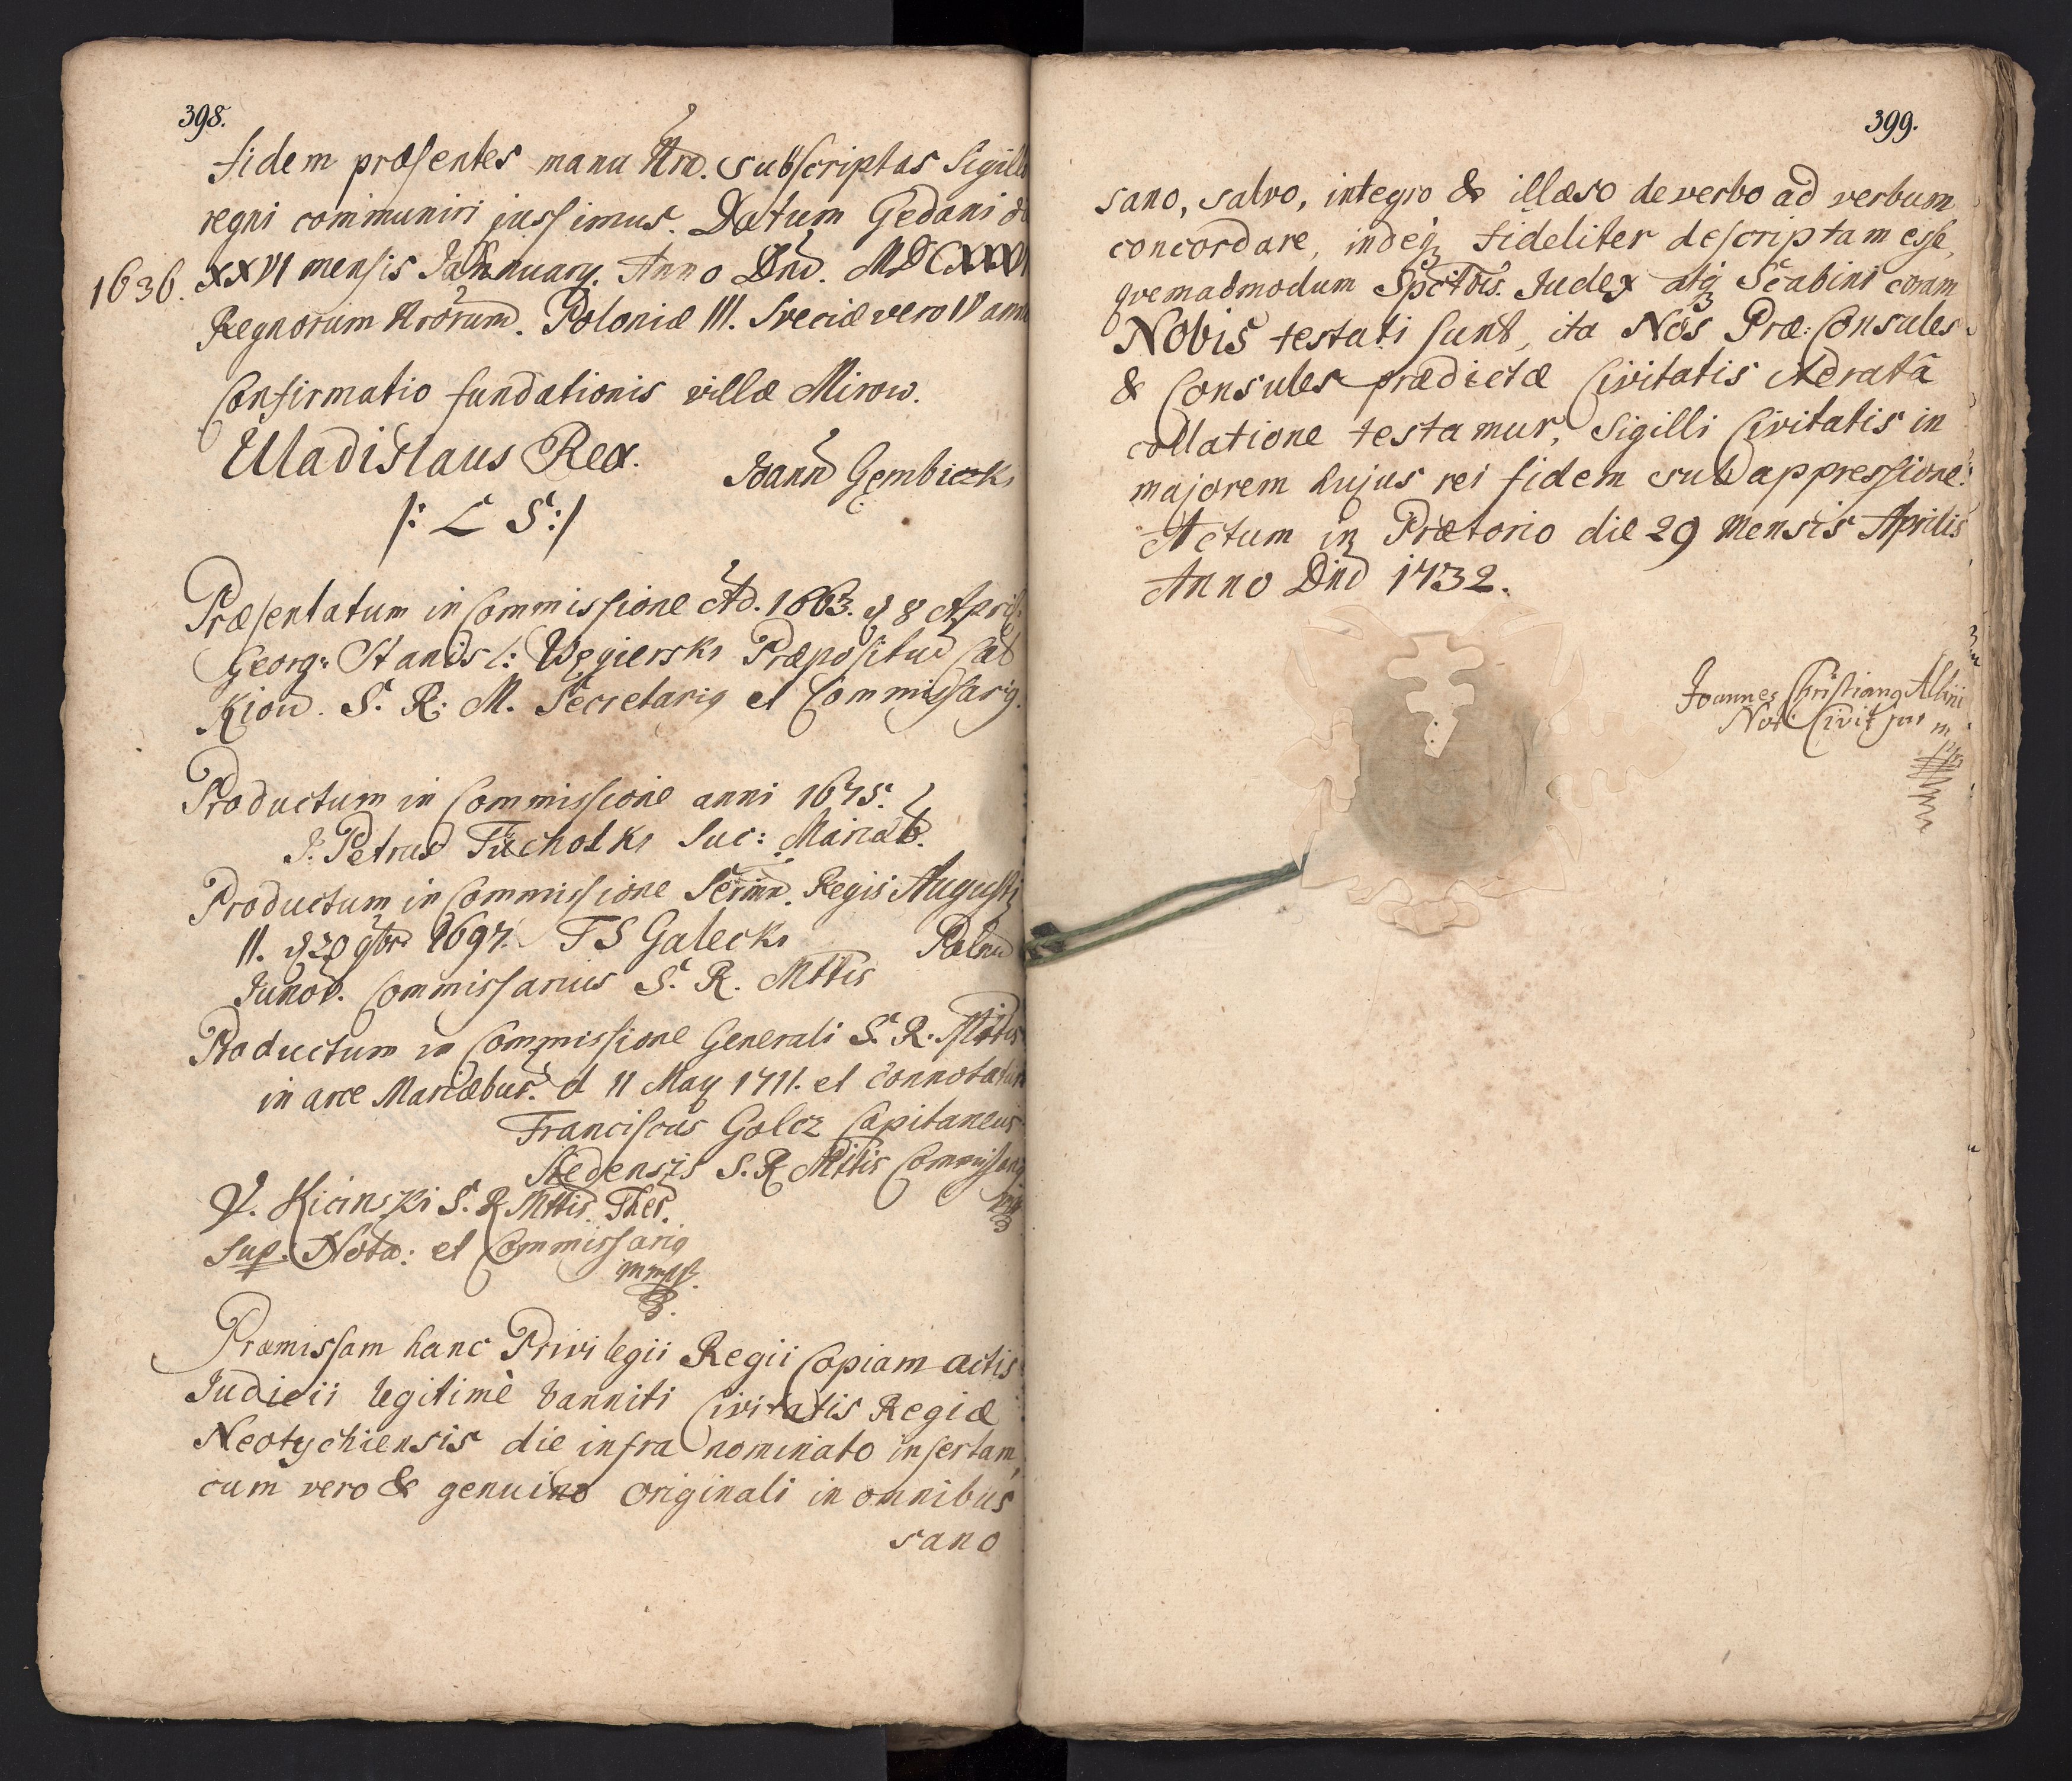 398.
fidem præsentes manu Nrâ. subscriptas Sigillo
regni communiri jussimus. Datum Gedani
1636. XXVI mensis January. Anno Dni. MDCXXXVI
Regnorum Nrorum. Poloniæ III. Sveciæ vero IV anno
Confirmatio fundationis villæ Mirow.
Uladislaus Rex.
Joann Gembicki
/: L S :/
Præsentatum in Commissione Ad. 1663. d 8 April:
Georg: Stanisl: Węgierski Præpositus Cat
Kiov. S. R. M. Secretarig et Commissarig.
Productum in Commissione anni 1675.
J. Petrus Tucholki Suc: Mariæb.
Productum in Commissione Sermi. Regis Augusti
II. d 20 9br 1697. F S Galecki
Junov. Commissarius S. R. Mttis
Productum in Commissione Generali S. R. Mttis
in arce Mariæbur. d 11 May 1711. et connotatum
Franciscus Golcz Capitaneus
S. R Mttis Commissarig
V. Kicinski S. R Mttis. Thes.
Sup. Nota: et Commissarig
mmpp.
Præmissam hanc Privilegii Regii Copiam actis
Judicii legitimè banniti Civitatis Regiæ
Neotychiensis die infra nominato insertam,
cum vero & genuino originali in omnibus
sano
399.
sano, salvo, integro & illæso de verbo ad verbum
concordare, indeq3 fideliter descriptam esse,
qvemadmodum Spctbis. Judex atq3 Scabini coram
Nobis testati sunt, ita Nos Præ: Consules
& Consules prædictæ Civitatis iteratâ
collatione testamur, Sigilli Civitatis in
majorem hujus rei fidem sub appressione.
Actum in Prætorio die 29 Mensis Aprilis
Anno Dni 1732.
Joannes Christiang Albini
Not: Civit jur
mpp